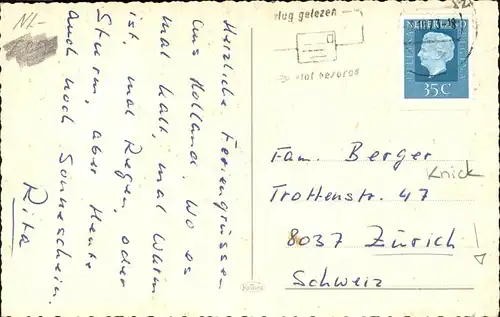 NL-
Herzliche Feriengrüssen
aus Holland. Wo es
mal kalt, mal warm
ist, mal Regen, oder
Sturm, aber Heute
auch noch Sonneschein.
Rita
vlug gelezen
NEDERLAND
35 C
Fam. Berger
Knick
Trottenstr. 47
8037 Zürich
Schweiz